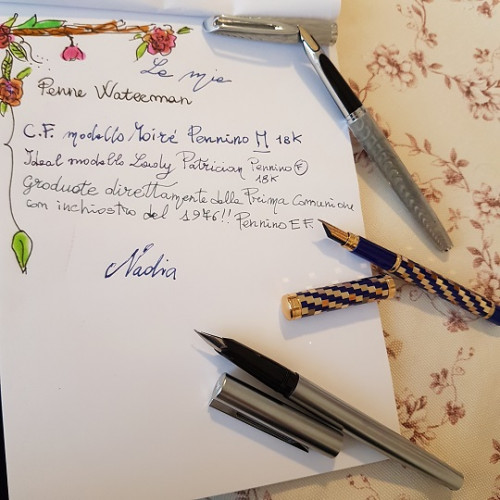 Le mie
Penne Waterman
C.F. modello Moiré Pennino M 18K
Ideal modello Lady Patrician Pennino F
18K
Graduate direttamente dalla Prima Comunione
con inchiostro del 1976!! Pennino E.F.
Nadia